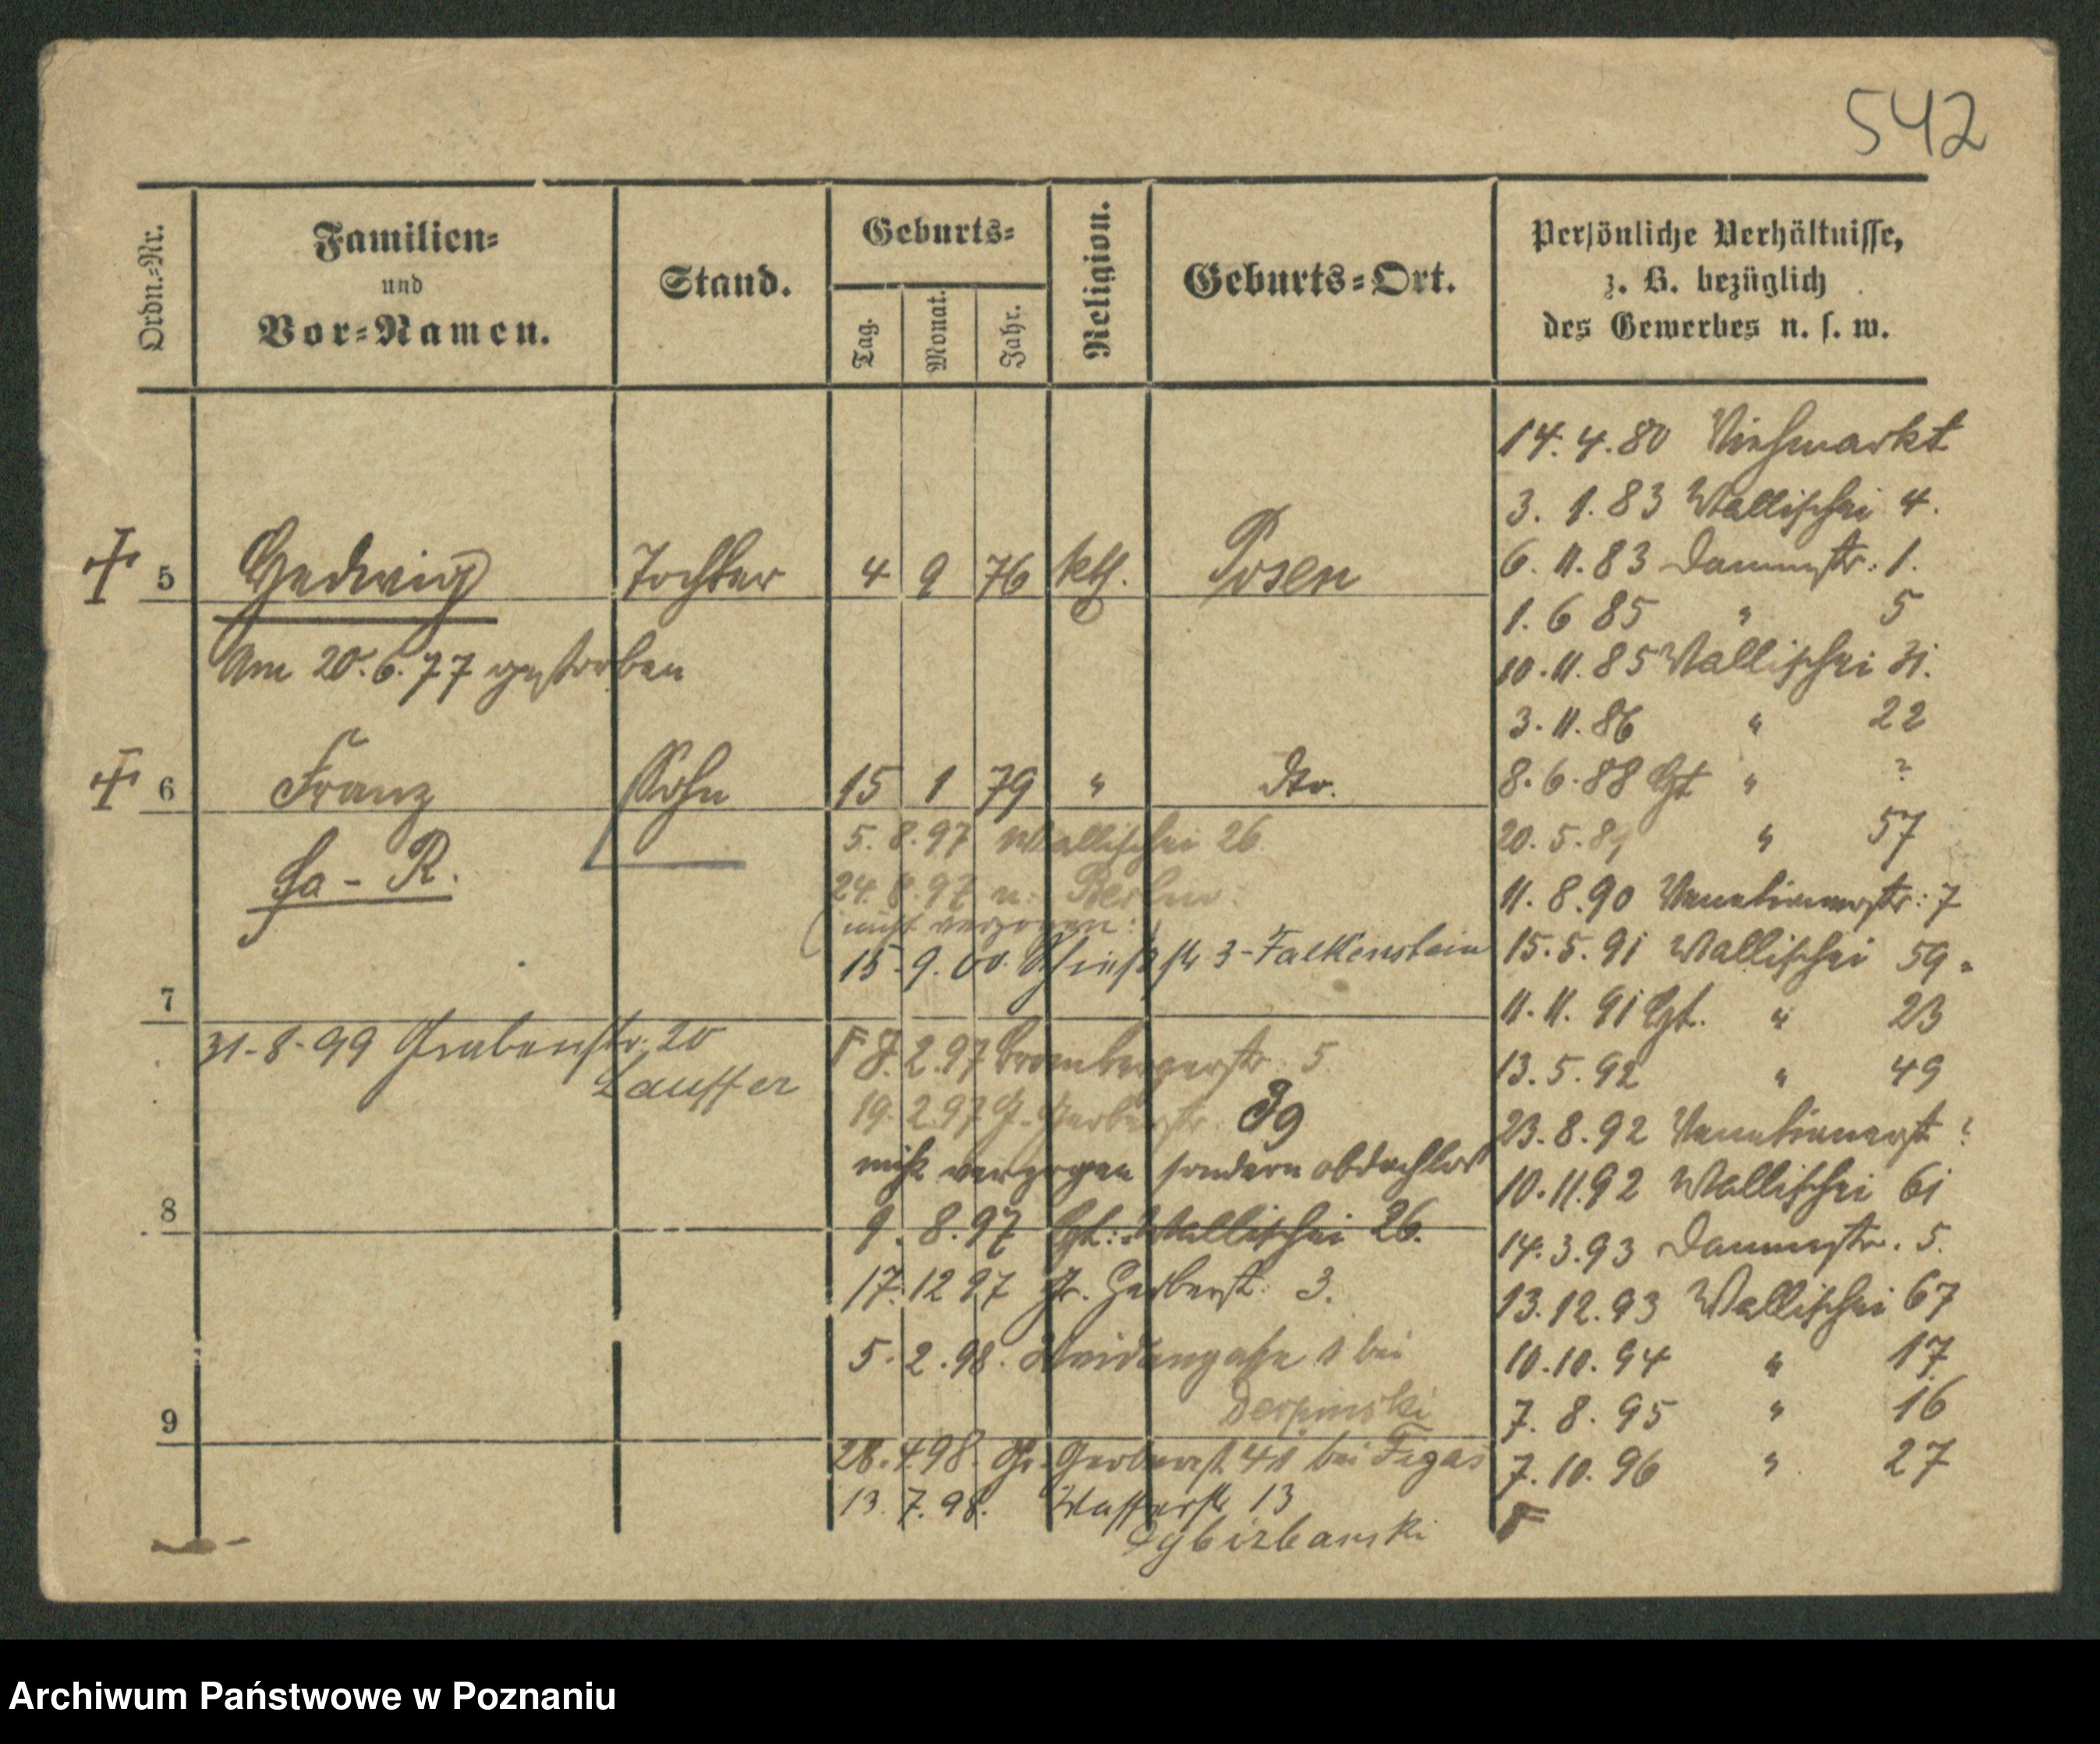 542
Ordn.-Nr.
Familien-
und
Vor-Namen.
Stand.
Geburts-
Tag.
Monat.
Jahr.
Religion.
Geburts-Ort.
Persönliche Verhältnisse,
z. B. bezüglich
des Gewerbes u. s. w.
5 Hedwig Tochter 4 9 76 kth. Posen
Am 20.6.77 gestorben
6 Franz Sohn 15 1 79 " dto.
La - R.
5. 8. 97 Wallischei 26
24. 8. 97 n. Berlin
(nicht verzogen.)
15. 9. 00. Schießstr 3 - Falkenstein
7
31-8-99 Grabenstr. 20
Lauffer
F 8. 2. 97 Brombergerstr. 5
19. 2. 97 G. Gerberstr. 39
nicht verzogen sondern obdachlos
8
9. 8. 97 Gt. Wallischei 26.
17. 12 97 Gr. Gerberst. 3.
5. 2. 98. Weidengasse 1 bei
Derpinski
9
28. 4. 98. Gr. Gerberst 41 bei Figas
13. 7. 98. Wasserstr 13
14. 4. 80 Viehmarkt
3. 1. 83 Wallischei 4.
6. 11. 83 Dammstr. 1.
1. 6 85 " 5
10. 11. 85 Wallischei 31.
3. 11. 86 " 22
8. 6. 88 Gt " ?
20. 5. 89 " 57
11. 8. 90 Venetianerstr: 7
15. 5. 91 Wallischei 59.
11. 11. 91 Gt. " 23
13. 5. 92 " 49
23. 8. 92 Venetianerst ?
10. 11. 92 Wallischei 61
14. 3. 93 Dammstr. 5.
13. 12. 93 Wallischei 67
10. 10. 94 " 17
7. 8. 95 " 16
7. 10. 96 " 27
F
Archiwum Państwowe w Poznaniu